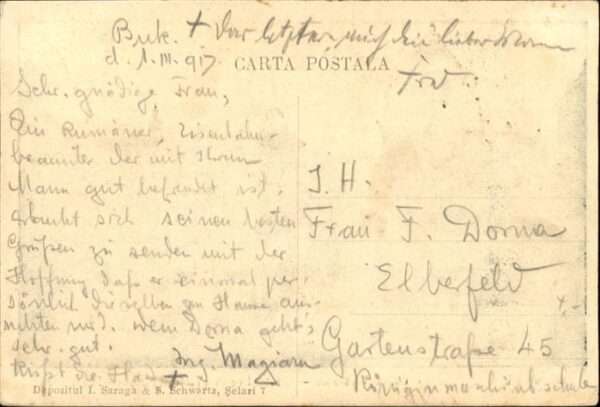 Buk.
d. 1. III. 917
+ Das
CARTA POSTALA
Sehr. gnädige Frau,
Ein Rumäner, Eisenbahn-
beamter der mit Ihrem
Mann gut befreundet ist,
erlaubt sich seinen besten
Grüßen zu senden mit der
Hoffnung daß er einmal per-
sönlich dieselben zu Hause aus-
richten wird. Dorna geht's
sehr gut.
Küßt die Hand
Ing. Magiaru
I. H.
Frau F. Dorna
Elberfeld
Gartenstraße 45
Depositul I. Saraga & S. Schwartz, Șelari 7